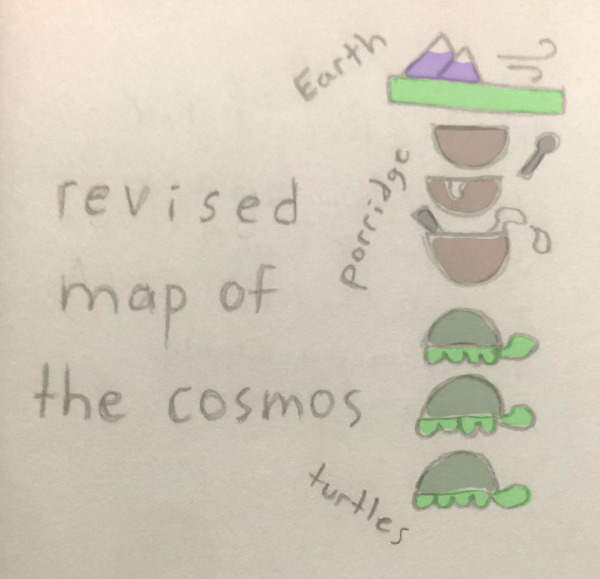 Earth
porridge
revised
map of
the cosmos
turtles